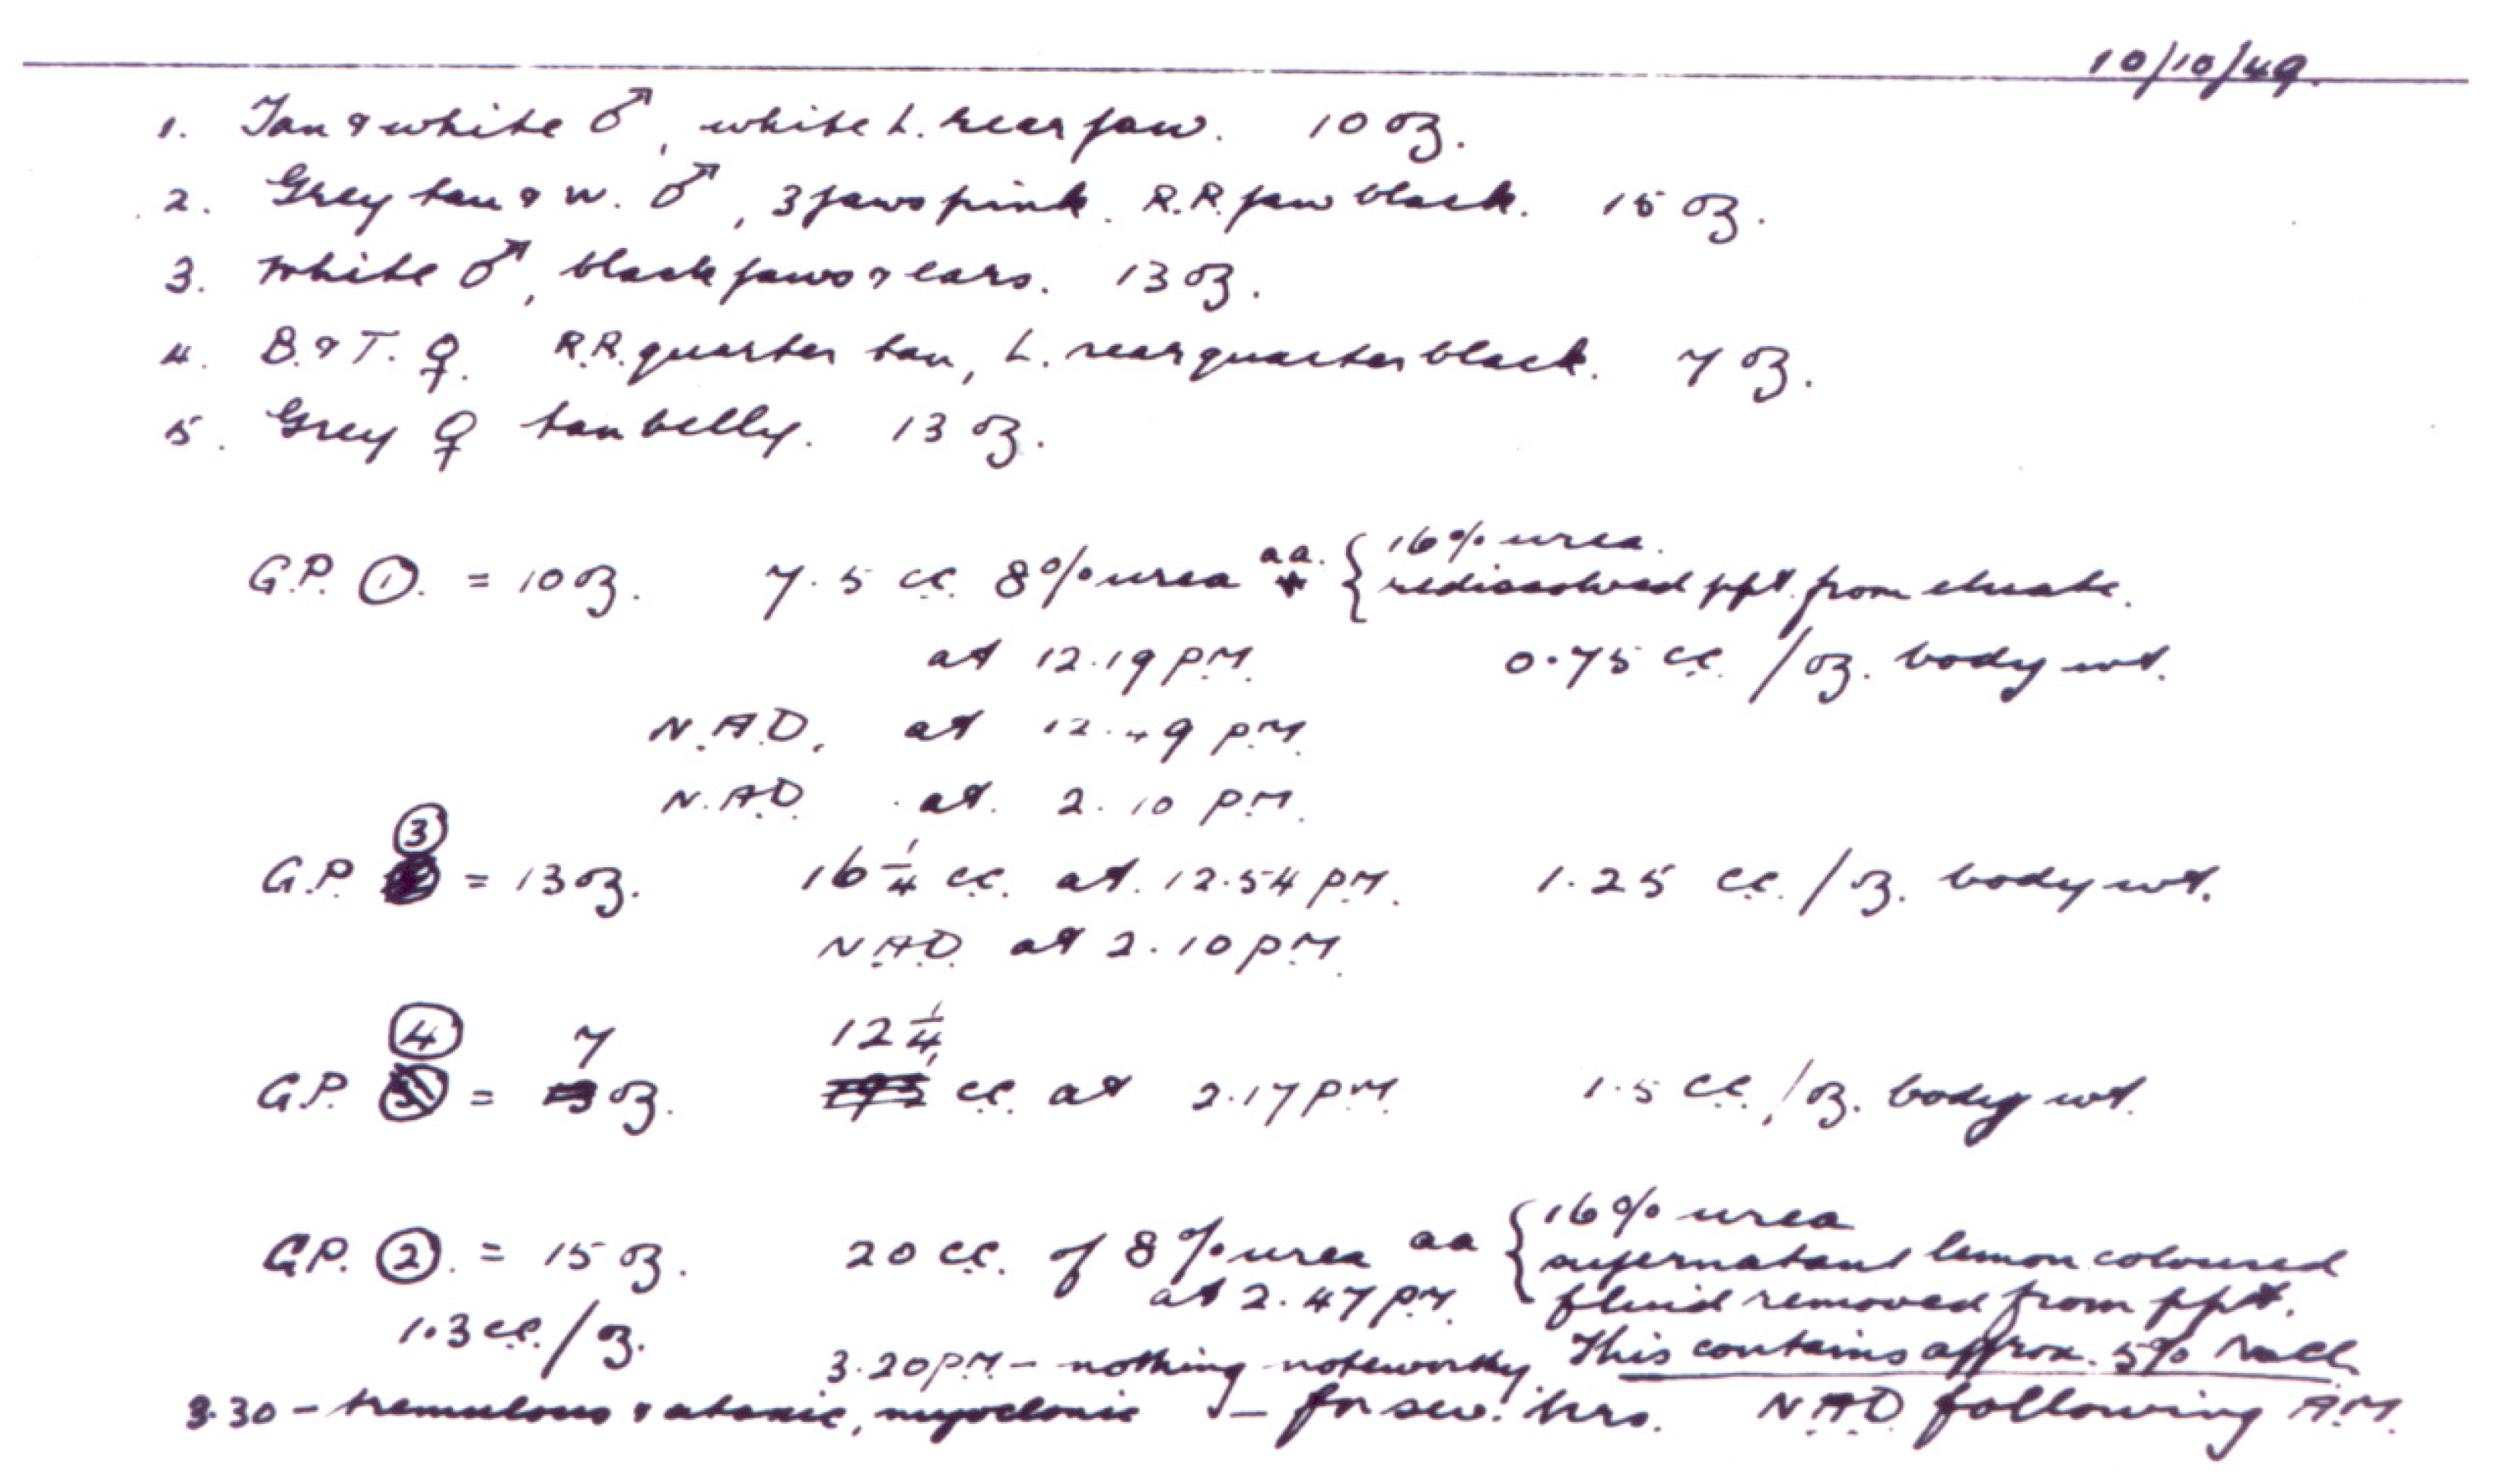 10/10/49.
1. Tan & white ♂, white L. rear paw. 10 oz.
2. Grey tan & w. ♂, 3 paws pink. R.R. paw black. 15 oz.
3. White ♂, black paws & ears. 13 oz.
4. B. & T. ♀. R.R. quarter tan, L. rear quarter black. 7 oz.
5. Grey ♀ tan belly. 13 oz.
G.P. ①. = 10 oz. 7.5 cc. 8% urea aa. { 16% urea.
redissolved ppt. from eluate.
at 12.19 P.M. 0.75 cc. / oz. body wt.
N.A.D. at 12.49 P.M.
N.A.D. at. 2.10 P.M.
③
G.P. = 13 oz. 16 1/4 cc. at. 12.54 P.M. 1.25 cc. / oz. body wt.
N.A.D. at 2.10 P.M.
④ 7 12 1/4
G.P. = oz. cc. at 2.17 P.M. 1.5 cc. / oz. body wt.
G.P. ②. = 15 oz. 20 cc. of 8% urea aa { 16% urea
supernatant lemon coloured
at 2.47 P.M. fluid removed from ppt.
1.3 cc. / oz. This contains approx. 5% NaCl
3.20 P.M. - nothing noteworthy.
3.30 - tremulous & ataxic, myoclonic for sev! hrs. N.A.D following A.M.